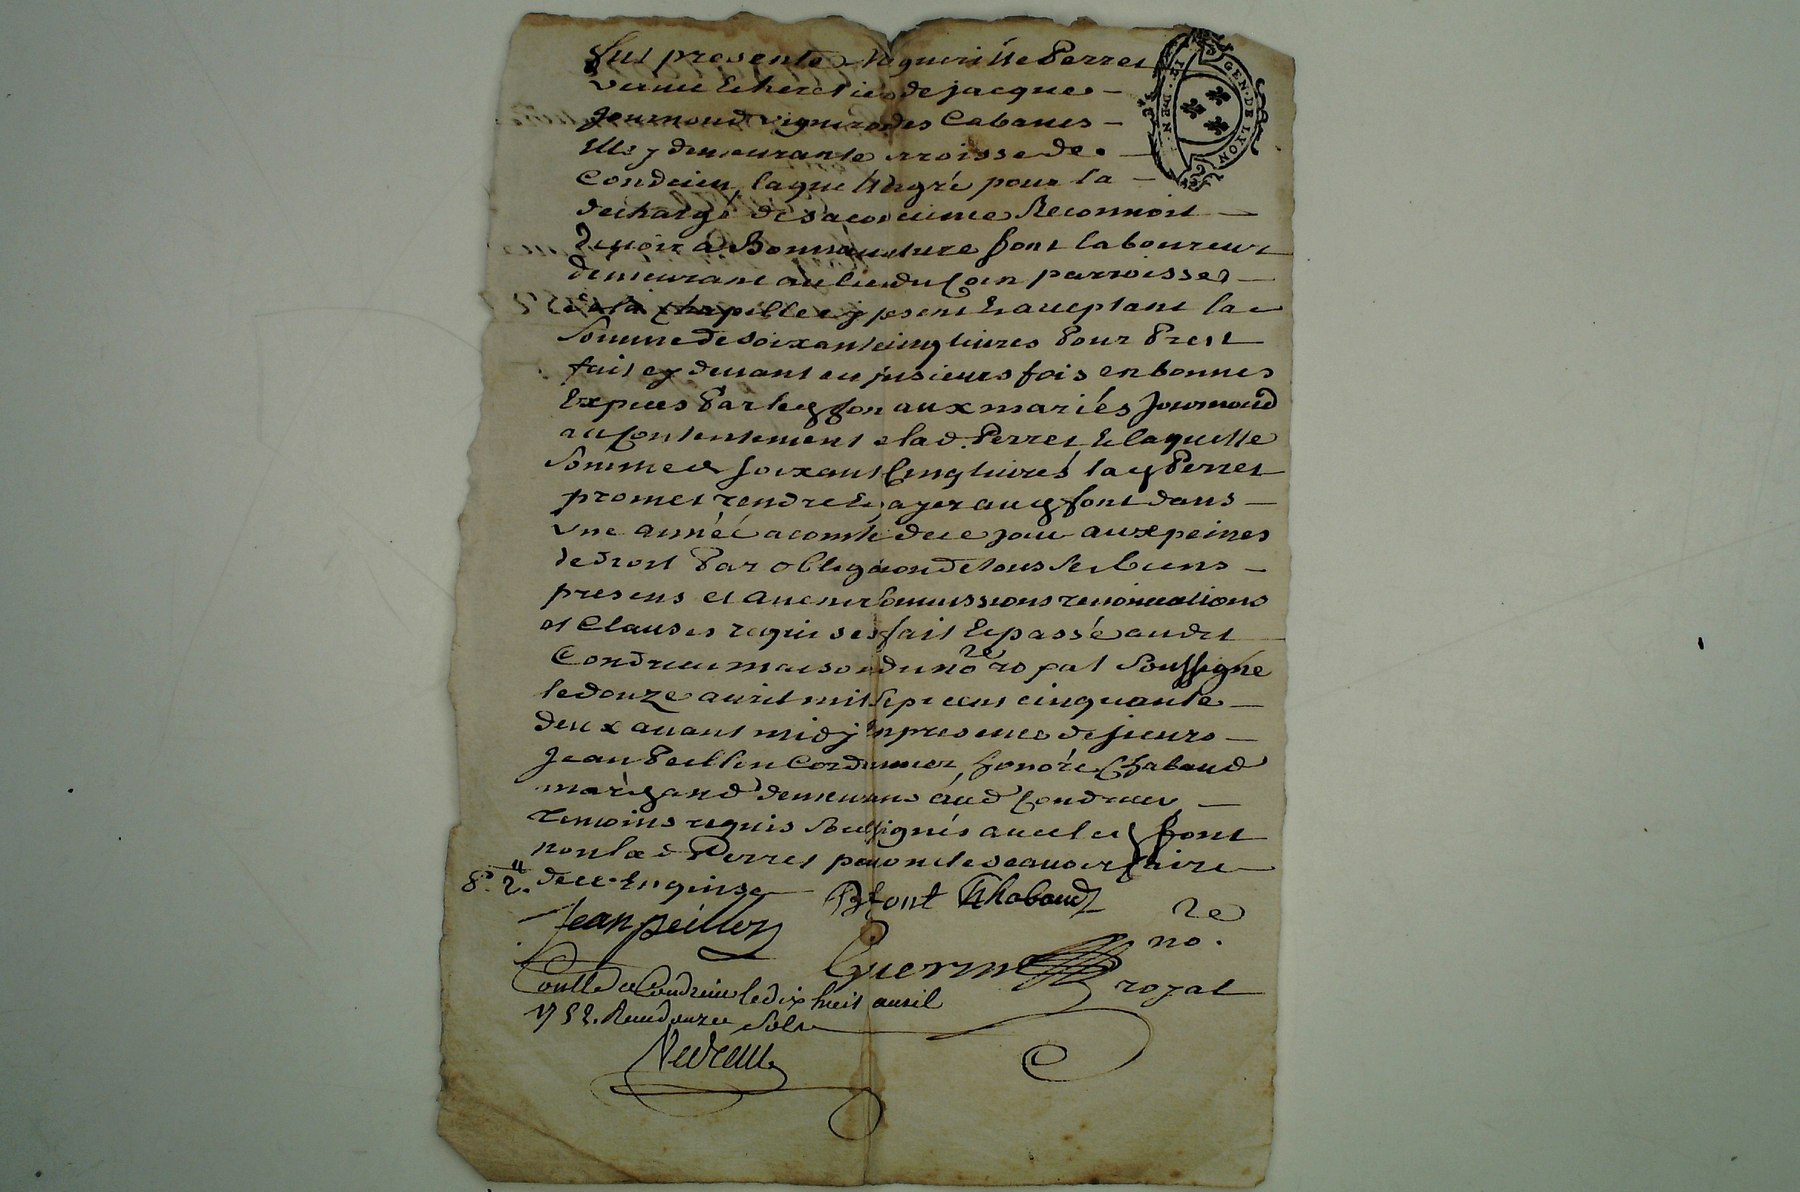 fut presente Margueritte Perret
veuve & heretiere de Jacque
Journoud vigneron des Cabanes
Elle y demeurante parroisse de
Condrieu, laquelle degré pour la
decharge de sa concience Reconnoit
devoir a Bonnaventure font laboureur
demeurant au lieu du Coin parroisse
de la Chapelle cy present & acceptant la
Somme de soixante cinq livres Pour Prest
fait cy devant en plusieurs fois en bonnes
Expeces Par led font aux mariés Journoud
au Contentement de lad. Perret & laquelle
Somme de soixante Cinq livres lad Perret
promet rendre & payer aud font dans
une année a comter de ce jour aux peines
de droit Par obligation de tous ses biens
presens et avenir Soumissions renonciations
et Clauses requises fait & passé audit
Condrieu maison du no.re royal Soussigné
le douze avril mil sept cent cinquante
deux avant midy En presence de sieurs
Jean Peillon Cordonnier, honoré Chabaud
marchand demeurans aud Condrieu
temoins requis Soussignés avec led font
non lad Perret pour ne le scavoir faire
de ce Enquise
Jean peillon
Bfont Chabaud
Guerin
no.re
royal
Conllé a Condrieu le dix huit avril
1752. Receu douze sols